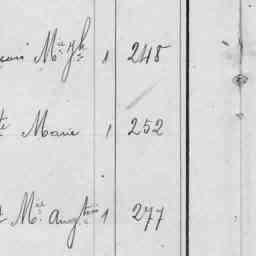 Mie Jh 1 248
te Marie 1 252
Mie Augtine 1 277